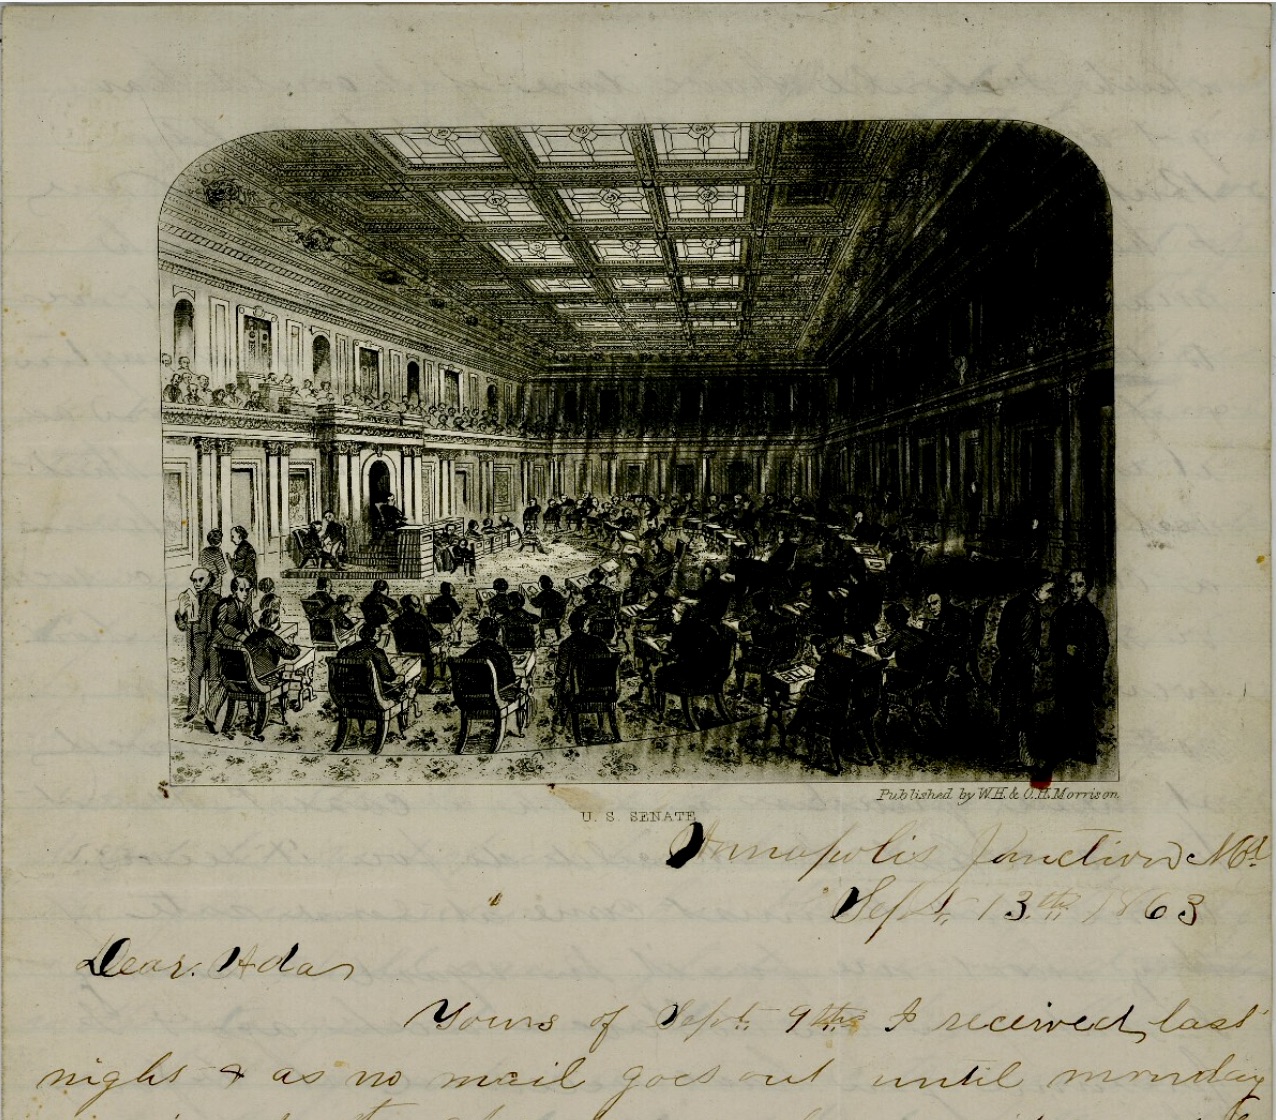 Published by W.H. & O.H. Morrison.
U. S. SENATE
Annapolis Junction Md.
Sept. 13th 1863
Dear Ada
Yours of Sept. 9th I received last
night & as no mail goes out until monday